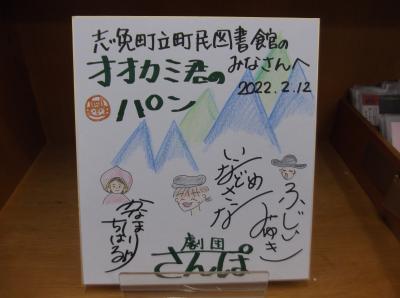 志免町立町民図書館の
みなさんへ
オオカミ君の
パン
2022.2.12
いなどめ
さな
ふじい
みゆき
かなまり
ちはる
劇団
さんぽ